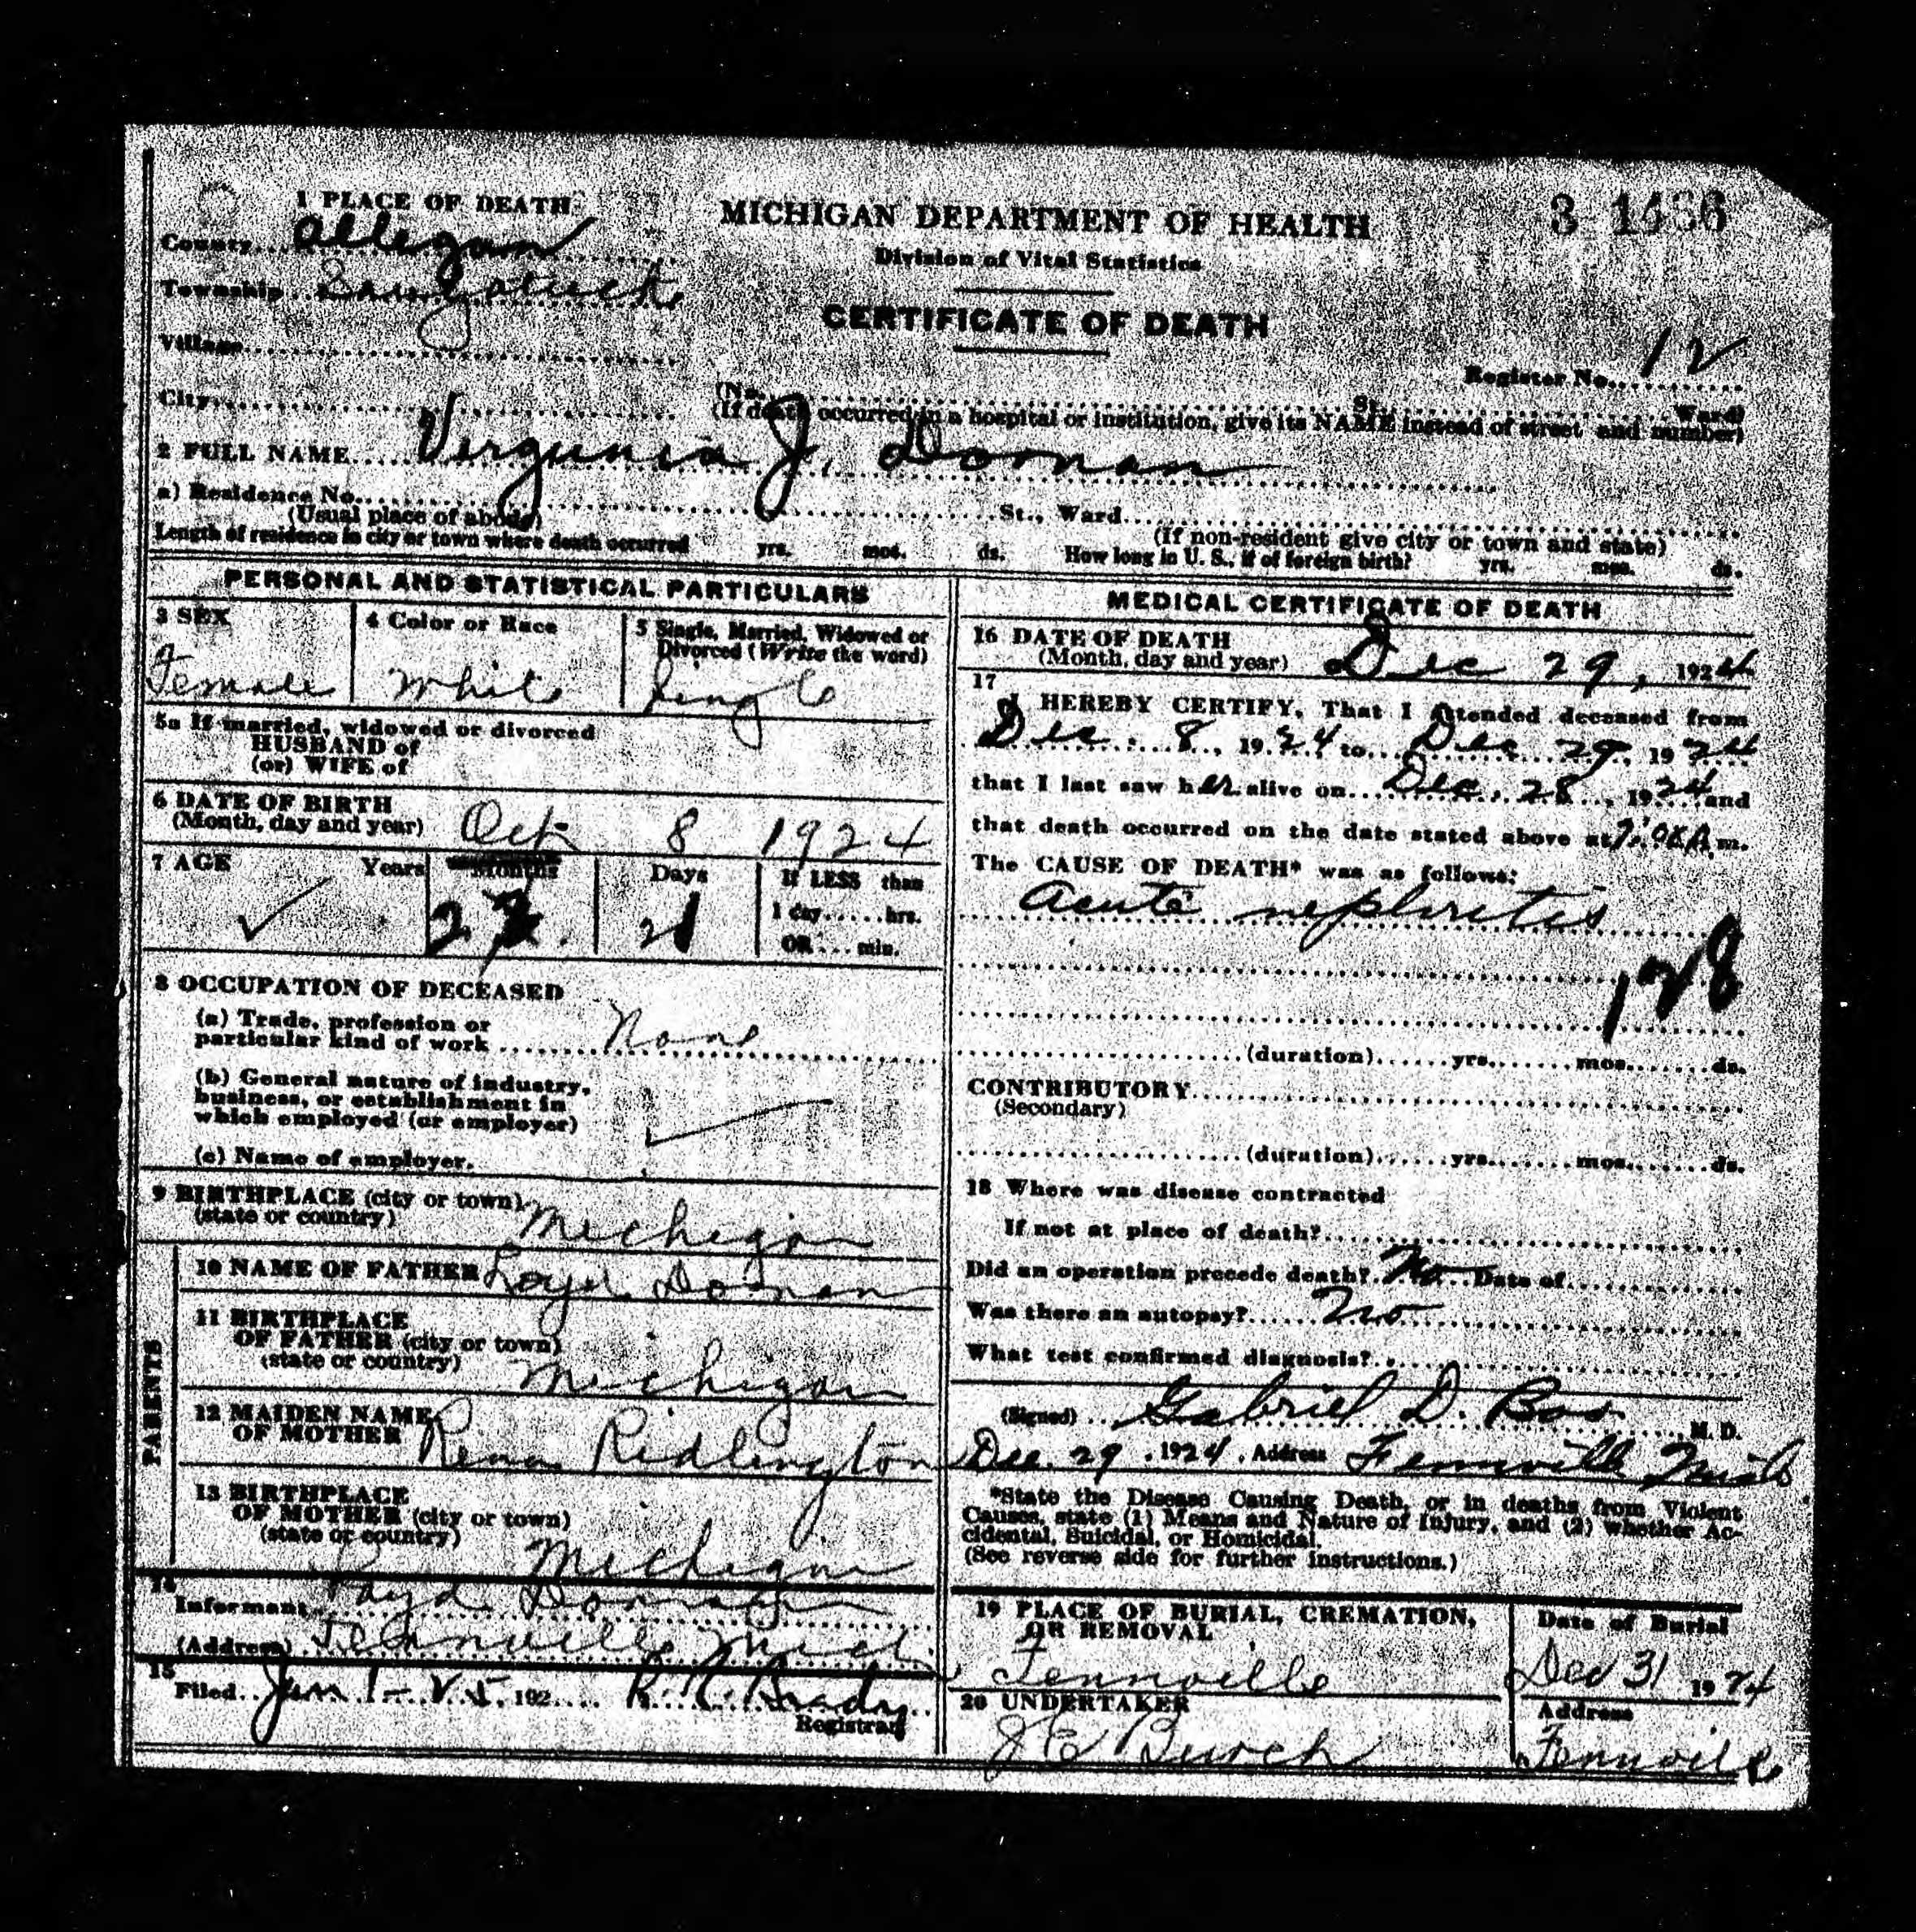 1 PLACE OF DEATH
MICHIGAN DEPARTMENT OF HEALTH
Division of Vital Statistics
CERTIFICATE OF DEATH
County Allegan
Township Saugatuck
Village
City
Register No. 12
(No. St. Ward)
(If death occurred in a hospital or institution, give its NAME instead of street and number)
2 FULL NAME Vergunia J. Doonan
a) Residence No. St., Ward
(Usual place of abode) (If non-resident give city or town and state)
Length of residence in city or town where death occurred yrs. mos. ds. How long in U. S., if of foreign birth? yrs. mos. ds.
PERSONAL AND STATISTICAL PARTICULARS
3 SEX
Female
4 Color or Race
White
5 Single, Married, Widowed or
Divorced (Write the word)
Single
5a If married, widowed or divorced
HUSBAND of
(or) WIFE of
6 DATE OF BIRTH
(Month, day and year) Oct 8 1924
7 AGE Years Months Days If LESS than
1 day hrs.
2 21 OR min.
8 OCCUPATION OF DECEASED
(a) Trade, profession or
particular kind of work None
(b) General nature of industry,
business, or establishment in
which employed (or employer)
(c) Name of employer.
9 BIRTHPLACE (city or town)
(state or country) Michigan
PARENTS
10 NAME OF FATHER Loyd Doonan
11 BIRTHPLACE
OF FATHER (city or town)
(state or country) Michigan
12 MAIDEN NAME
OF MOTHER Rena Ridlington
13 BIRTHPLACE
OF MOTHER (city or town)
(state or country) Michigan
14
Informant Loyd Doonan
(Address) Fennville Mich
15
Filed Jan 1-25, 192 Brady
Registrar
MEDICAL CERTIFICATE OF DEATH
16 DATE OF DEATH
(Month, day and year) Dec 29, 1924
17
I HEREBY CERTIFY, That I attended deceased from
Dec. 8, 1924 to Dec 29, 1924
that I last saw her alive on Dec. 28, 1924 and
that death occurred on the date stated above at m.
The CAUSE OF DEATH* was as follows:
Acute nephritis
128
(duration) yrs. mos. ds.
CONTRIBUTORY
(Secondary)
(duration) yrs. mos. ds.
18 Where was disease contracted
If not at place of death?
Did an operation precede death? No Date of
Was there an autopsy? No
What test confirmed diagnosis?
(Signed) Gabriel D. Bos M. D.
Dec. 29, 1924, Address Fennville Mich
*State the Disease Causing Death, or in deaths from Violent
Causes, state (1) Means and Nature of Injury, and (2) whether Ac-
cidental, Suicidal, or Homicidal.
(See reverse side for further instructions.)
19 PLACE OF BURIAL, CREMATION,
OR REMOVAL
Fennville
Date of Burial
Dec 31 1924
20 UNDERTAKER
J E Burch
Address
Fennville